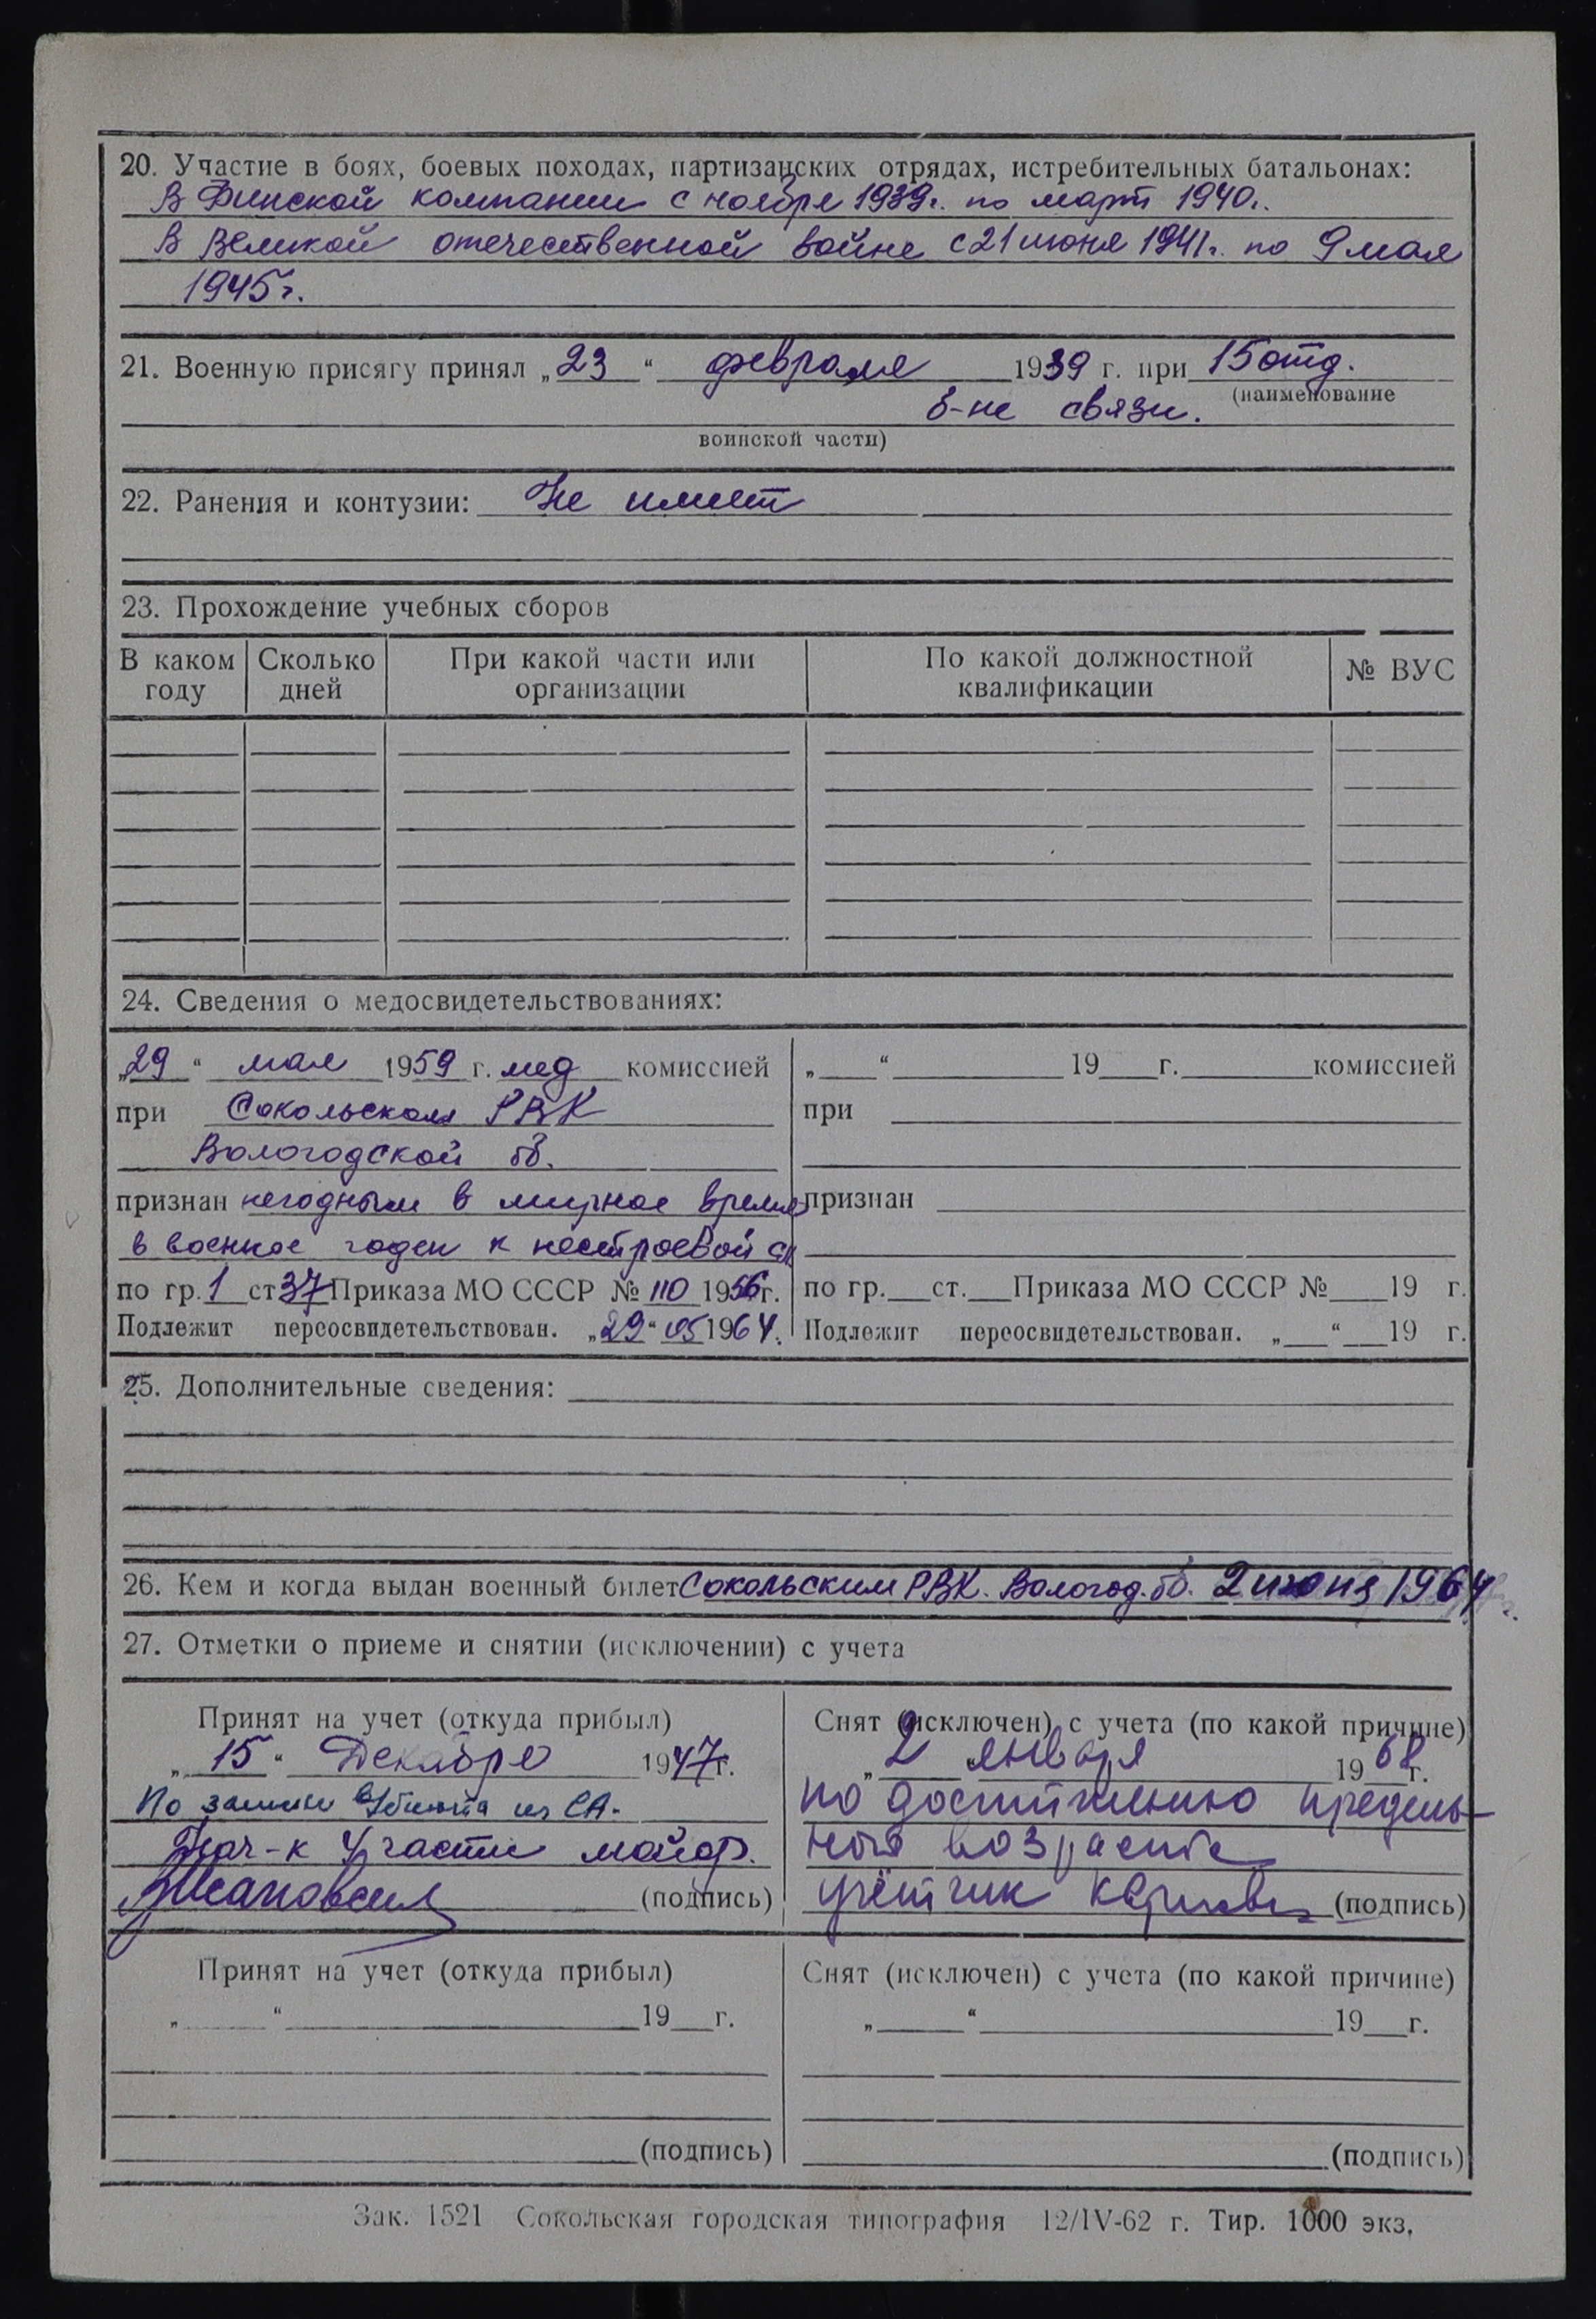 20. Участие в боях, боевых походах, партизанских отрядах, истребительных батальонах:
В Финской компании с ноября 1939г. по март 1940г.
В Великой отечественной войне с 21 июня 1941г. по 9 мая
1945г.
21. Военную присягу принял „23“ февраля 1939 г. при 15 отд.
(наименование
б-не связи.
воинской части)
22. Ранения и контузии: Не имеет
23. Прохождение учебных сборов
В каком году Сколько дней При какой части или организации По какой должностной квалификации № ВУС
24. Сведения о медосвидетельствованиях:
„29“ мая 1959 г. мед комиссией
при Сокольском РВК
Вологодской об.
признан негодным в мирное время
в военное годен к нестроевой сл
по гр. 1 ст 37 Приказа МО СССР № 110 1956г.
Подлежит переосвидетельствован. „29“ 05 1964.
„ “ 19 г. комиссией
при
признан
по гр. ст. Приказа МО СССР № 19 г.
Подлежит переосвидетельствован. „ “ 19 г.
25. Дополнительные сведения:
26. Кем и когда выдан военный билет Сокольским РВК. Вологод. об. 2 июня 1964
27. Отметки о приеме и снятии (исключении) с учета
Принят на учет (откуда прибыл)
„15“ Декабря 1947г.
По из СА.
Нач-к 4 части майор.
(подпись)
Снят (исключен) с учета (по какой причине)
„2 января 1968г.
по достижению предель-
ного возраста
учётчик (подпись)
Принят на учет (откуда прибыл)
„ “ 19 г.
(подпись)
Снят (исключен) с учета (по какой причине)
„ “ 19 г.
(подпись)
Зак. 1521 Сокольская городская типография 12/IV-62 г. Тир. 1000 экз.